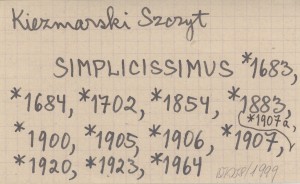 Kiezmarski Szczyt
SIMPLICISSIMUS *1683,
*1684, *1702, *1854, *1883,
*1907a,
*1900, *1905, *1906, *1907,
*1920, *1923, *1964
/1999